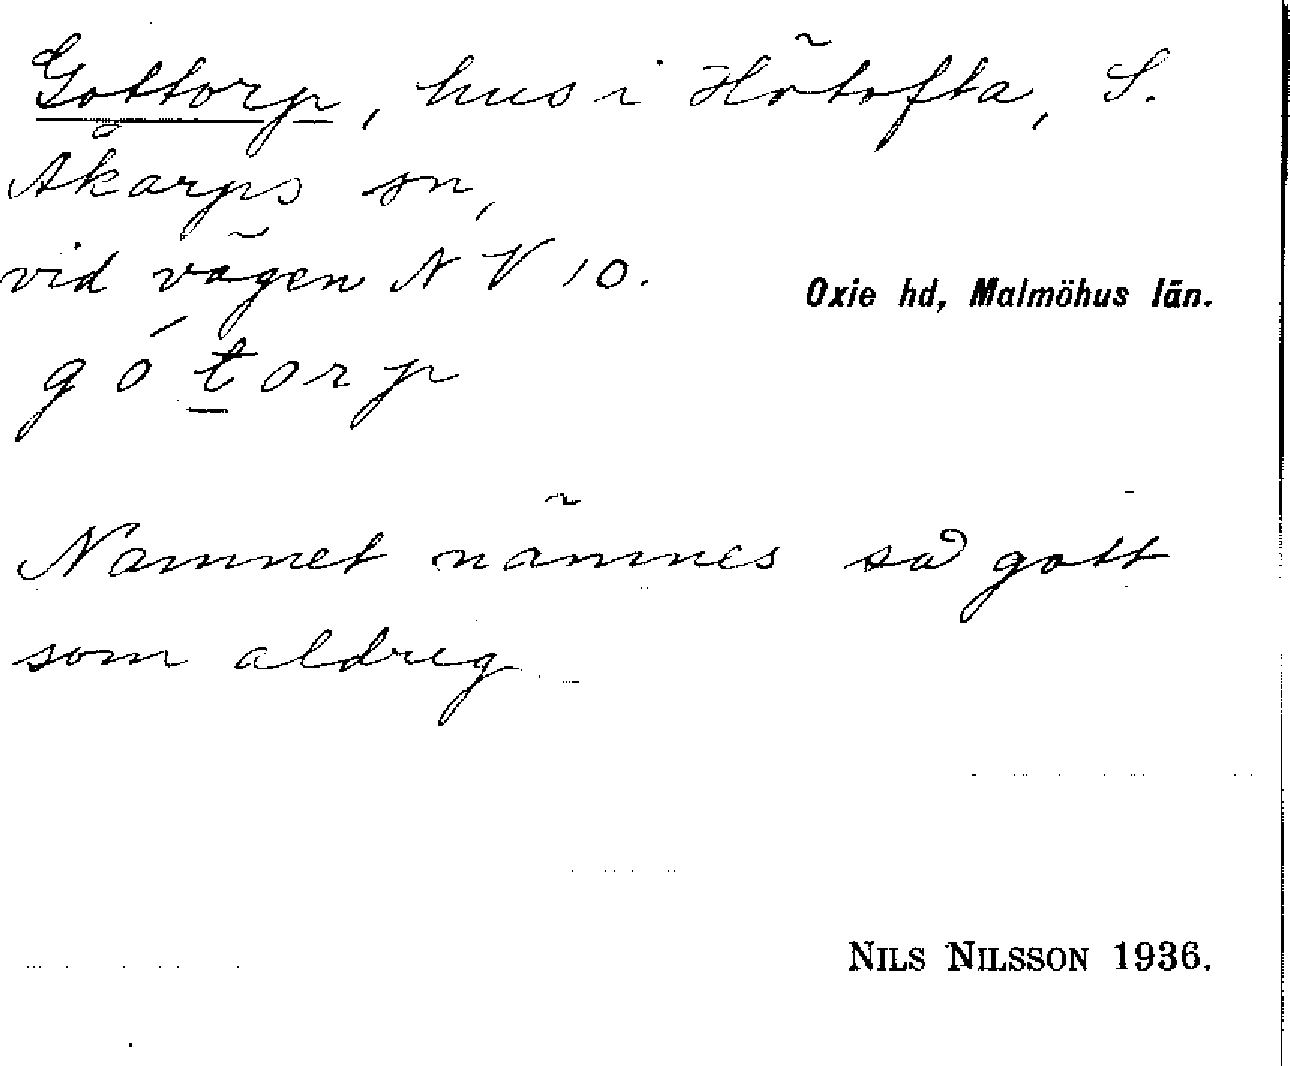 Gottorp, hus i Hötofta, S.
Åkarps sn,
vid vägen N V 10.
Oxie hd, Malmöhus län.
gótorp
Namnet nämnes så gott
som aldrig
NILS NILSSON 1936.